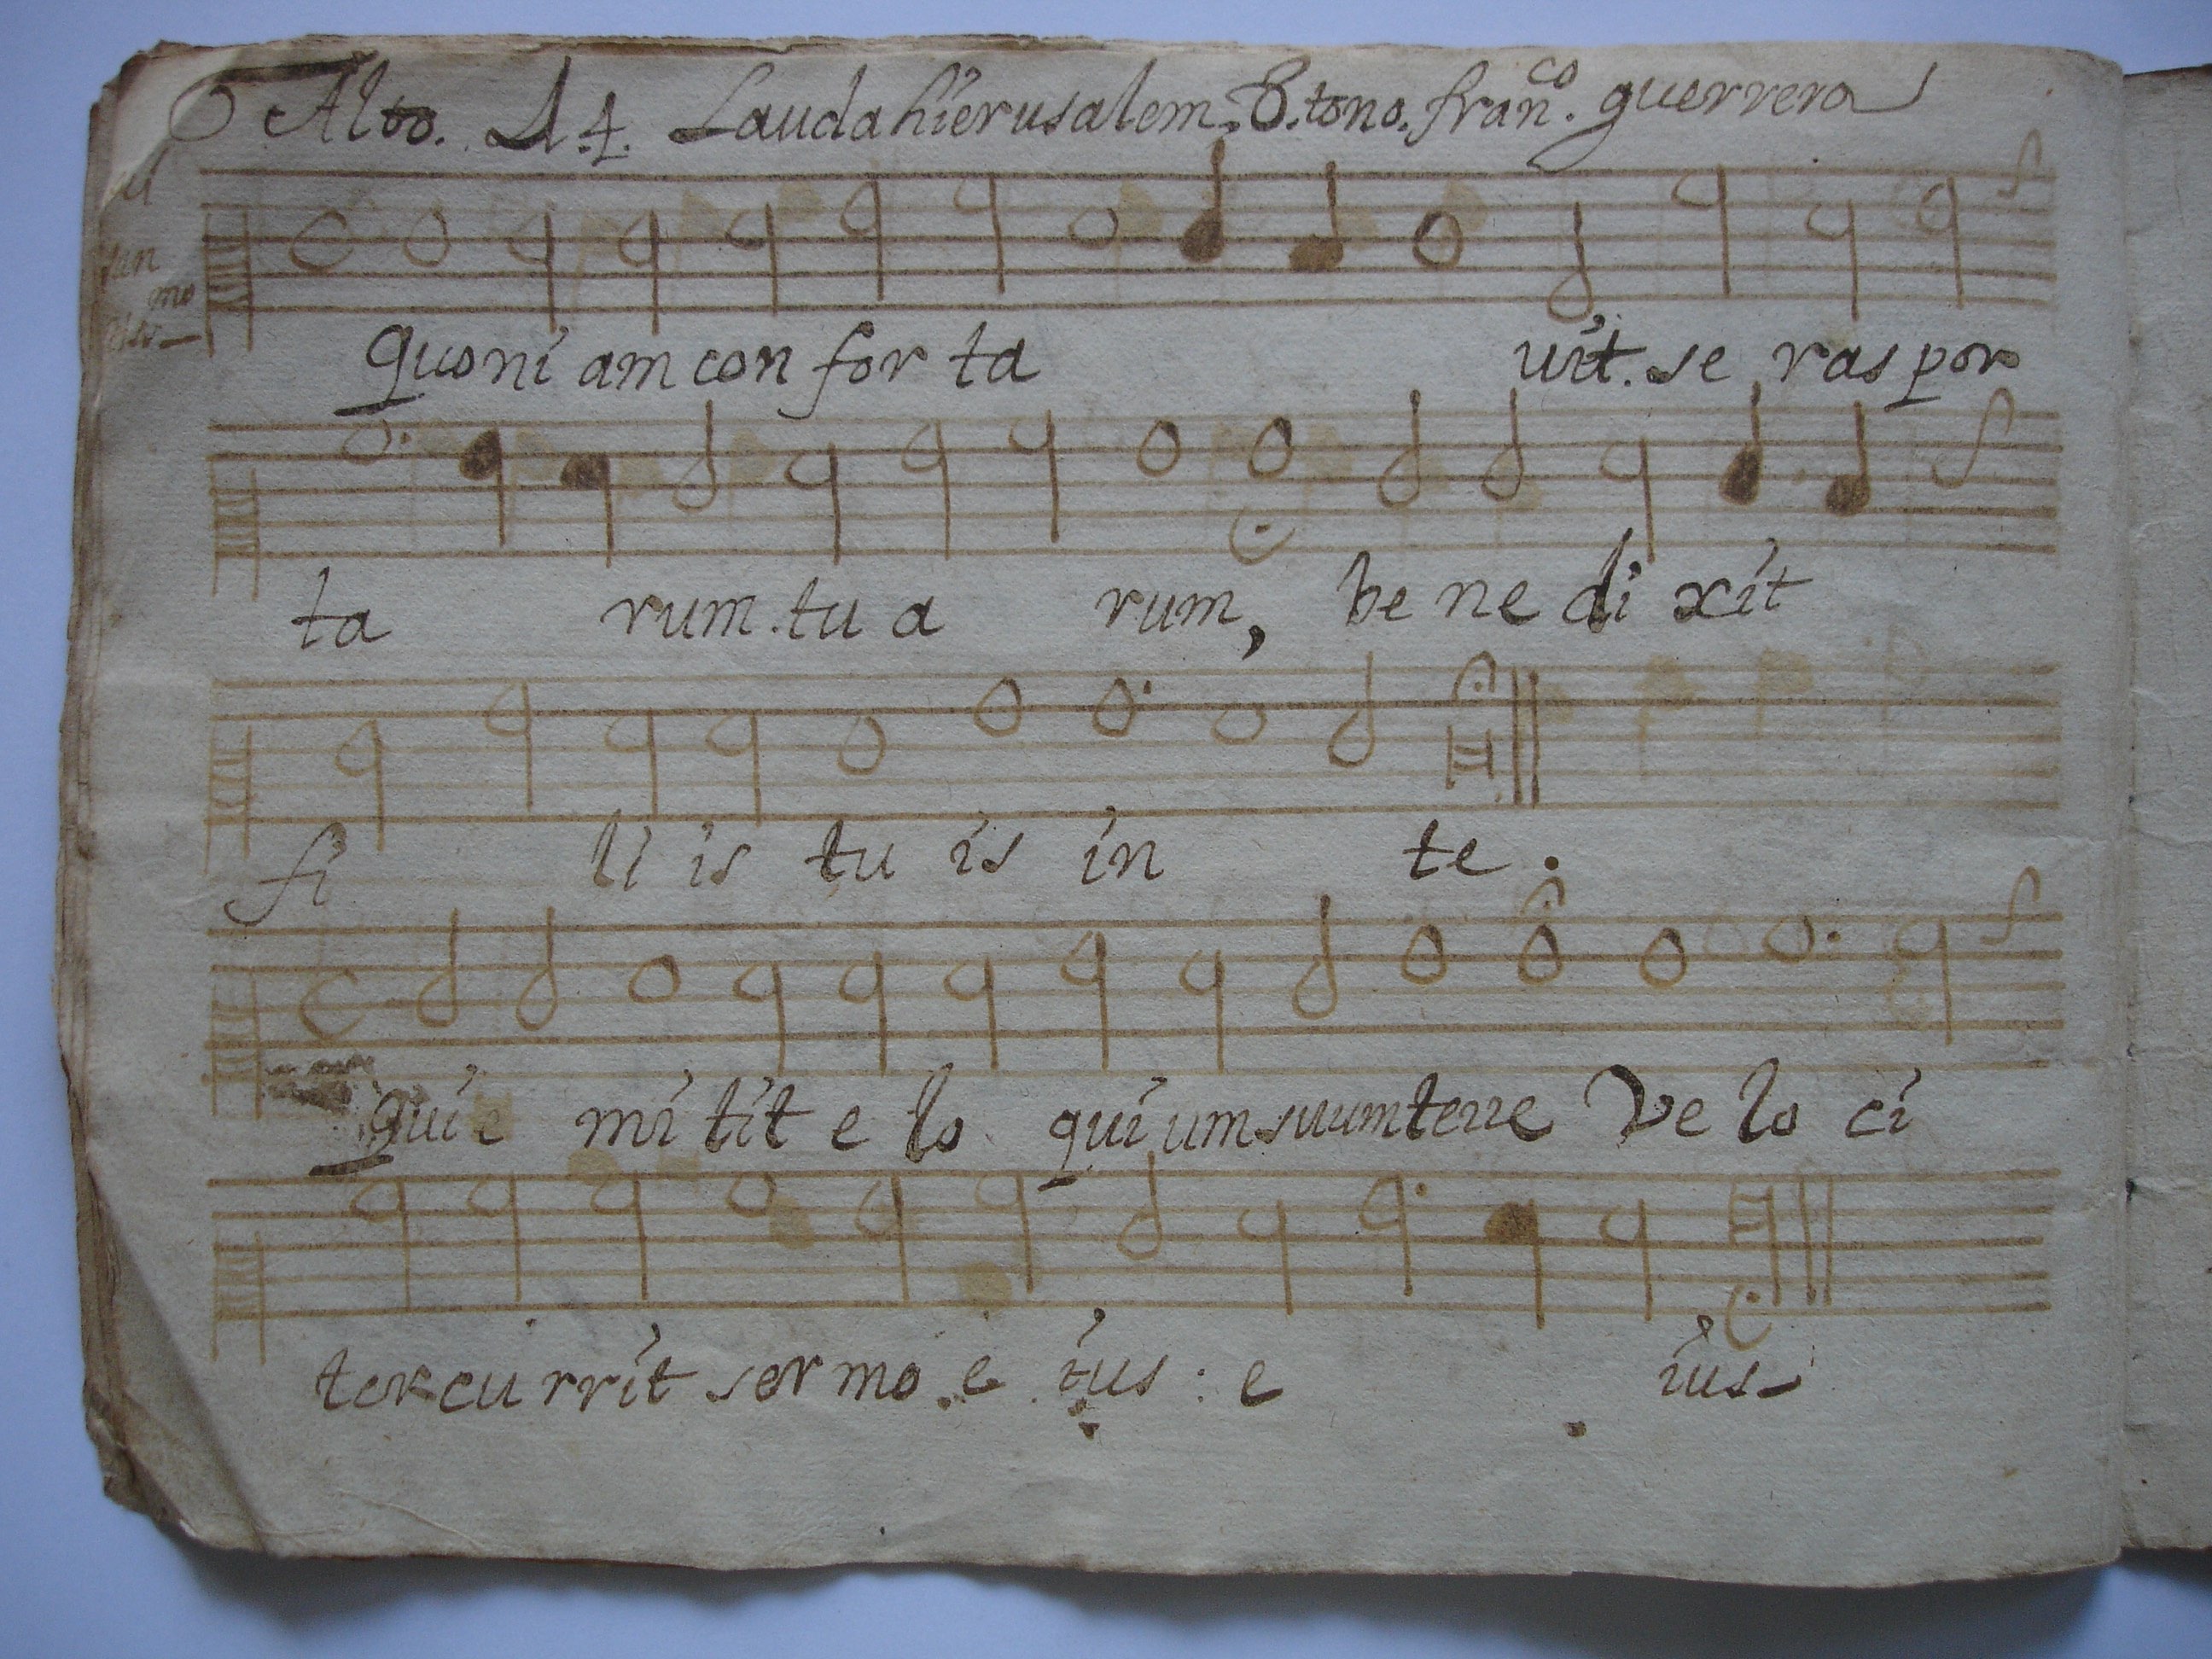 Alto. A 4. Lauda hierusalem. 8. tono. fran.co guerrero
quoni am con for ta uit. se ras por
ta rum. tu a rum, be ne di xit
fi li is tu is in te.
qui e mi tit e lo qui um suum terre Ve lo ci
ter cu rrit ser mo e ius : e ius